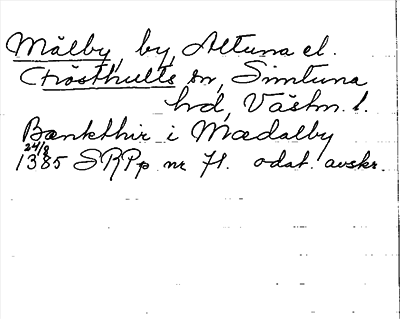 Målby, by, Altuna el.
Frösthults sn, Simtuna
hd, Västm. l.
Bænkthir i Mædalby
24/8
1385 SRPp nr 71. odat. avskr.